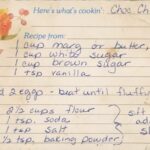 Here's what's cookin': Choc. Ch
Recipe from:
1 cup marg or butter,
1 cup white sugar
1 cup brown sugar
1 tsp vanilla
d 2 eggs - beat until fluff
2 1/2 cups flour
1 tsp. soda
1 tsp salt
1/2 tsp. baking powder
sif
ad
st